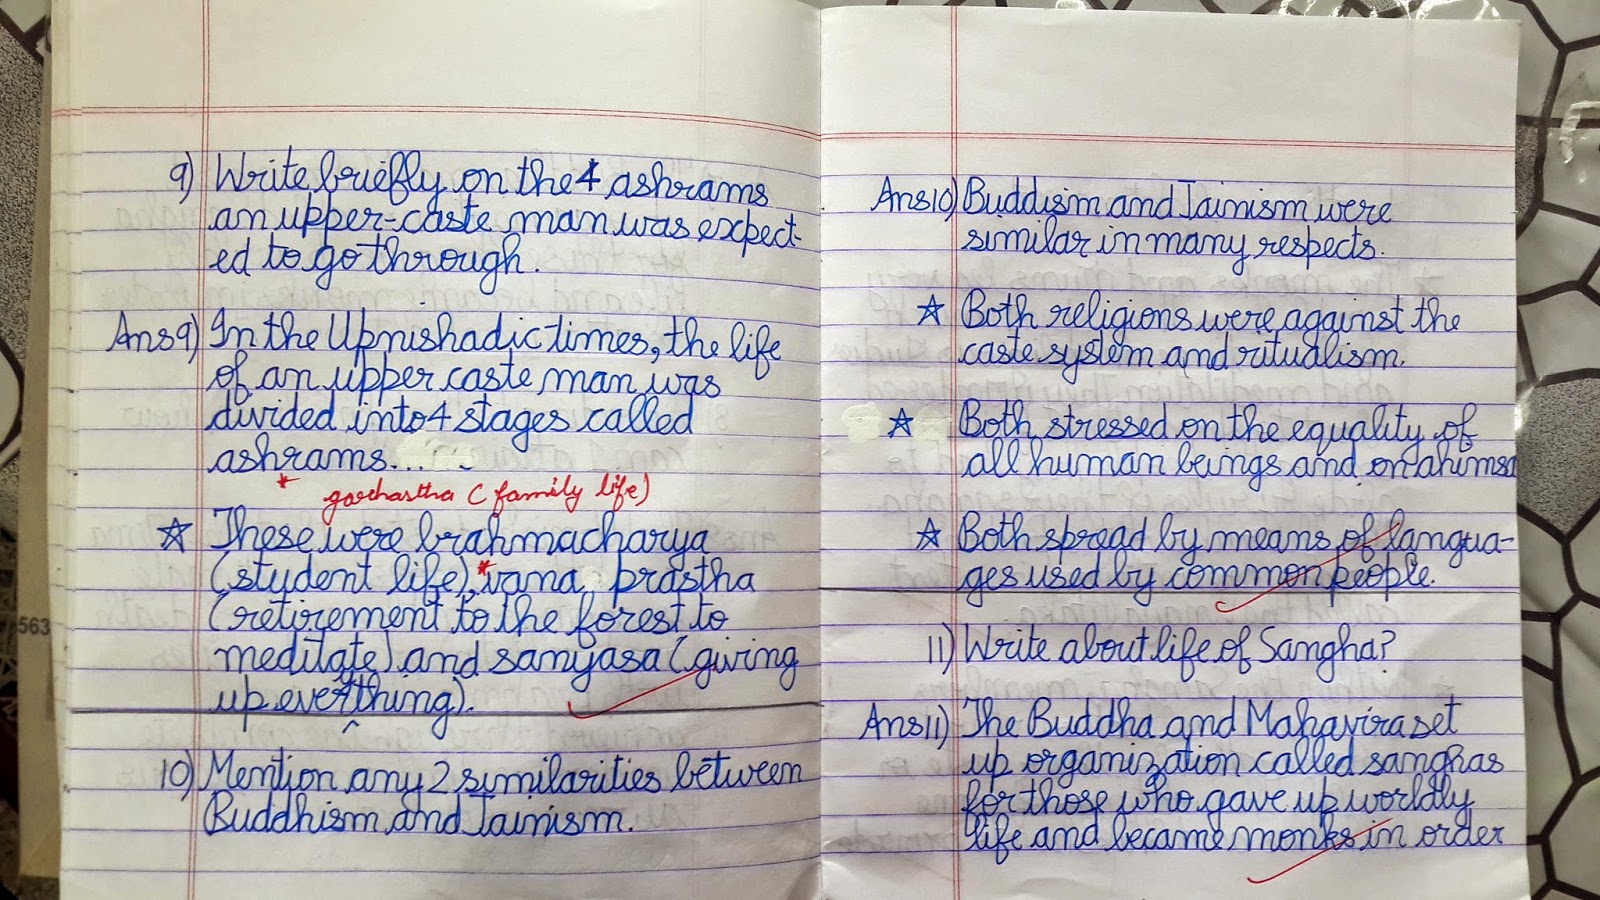 9) Write briefly on the 4 ashrams
an upper-caste man was expect-
ed to go through.
Ans9) In the Upnishadic times, the life
of an upper caste man was
divided into 4 stages called
ashrams...
* garhastha (family life)
☆ These were brahmacharya
(student life),* vana prastha
(retirement to the forest to
meditate) and sanyasa (giving
up everthing).
^
10) Mention any 2 similarities between
Buddhism and Jainism.
Ans10) Buddism and Jainism were
similar in many respects.
☆ Both religions were against the
caste system and ritualism.
☆ Both stressed on the equality of
all human beings and on ahimsa
☆ Both spread by means of langua-
ges used by common people.
11) Write about life of Sangha?
Ans11) The Buddha and Mahavira set
up organization called sanghas
for those who gave up worldly
life and became monks in order
563